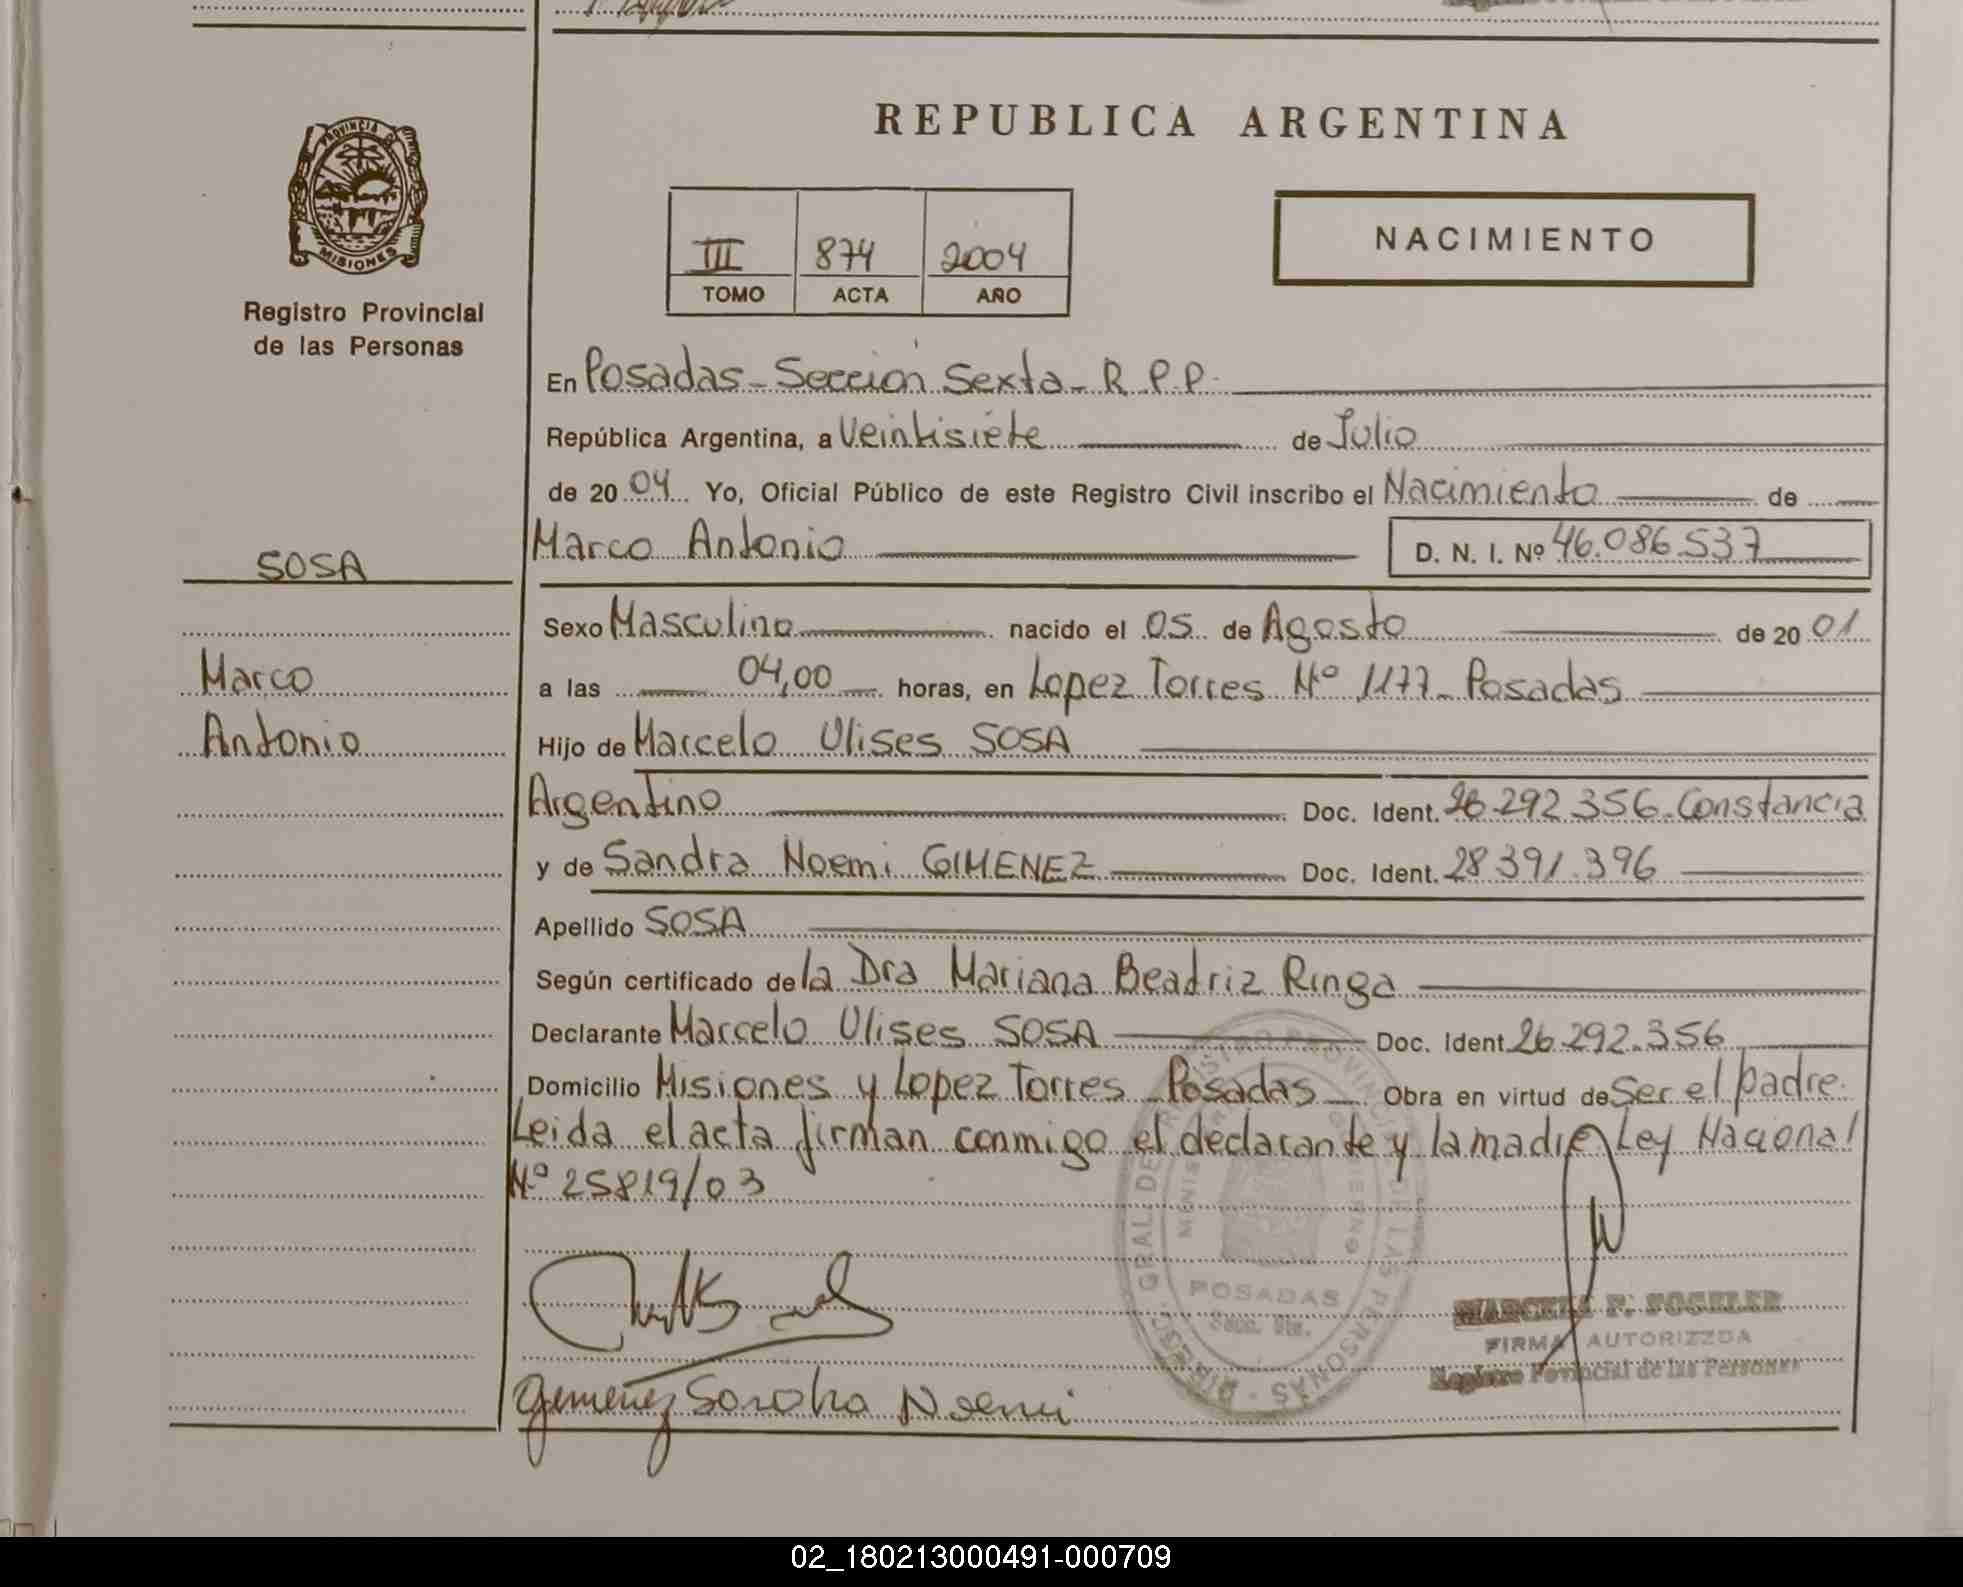 REPUBLICA ARGENTINA
PROVINCIA
MISIONES
Registro Provincial
de las Personas
III 874 2004
TOMO ACTA AÑO
NACIMIENTO
En Posadas - Sección Sexta - R.P.P.
República Argentina, a Veintisiete de Julio
de 2004 Yo, Oficial Público de este Registro Civil inscribo el Nacimiento de
Marco Antonio D. N. I. Nº 46.086.537
SOSA
Marco
Antonio
Sexo Masculino nacido el 05 de Agosto de 2001
a las 04,00 horas, en Lopez Torres Nº 1177 - Posadas
Hijo de Marcelo Ulises SOSA
Argentino Doc. Ident. 26.292.356. Constancia
y de Sandra Noemi GIMENEZ Doc. Ident. 28.391.396
Apellido SOSA
Según certificado de la Dra Mariana Beadriz Ringa
Declarante Marcelo Ulises SOSA Doc. Ident 26.292.356
Domicilio Misiones y Lopez Torres - Posadas - Obra en virtud de Ser el padre.
Leida el acta firman conmigo el declarante y la madre Ley Nacional
Nº 25819/03
POSADAS
FIRMA AUTORIZZDA
Registro Povincial de las Personas
Gimenez Sandra Noemi
02_180213000491-000709